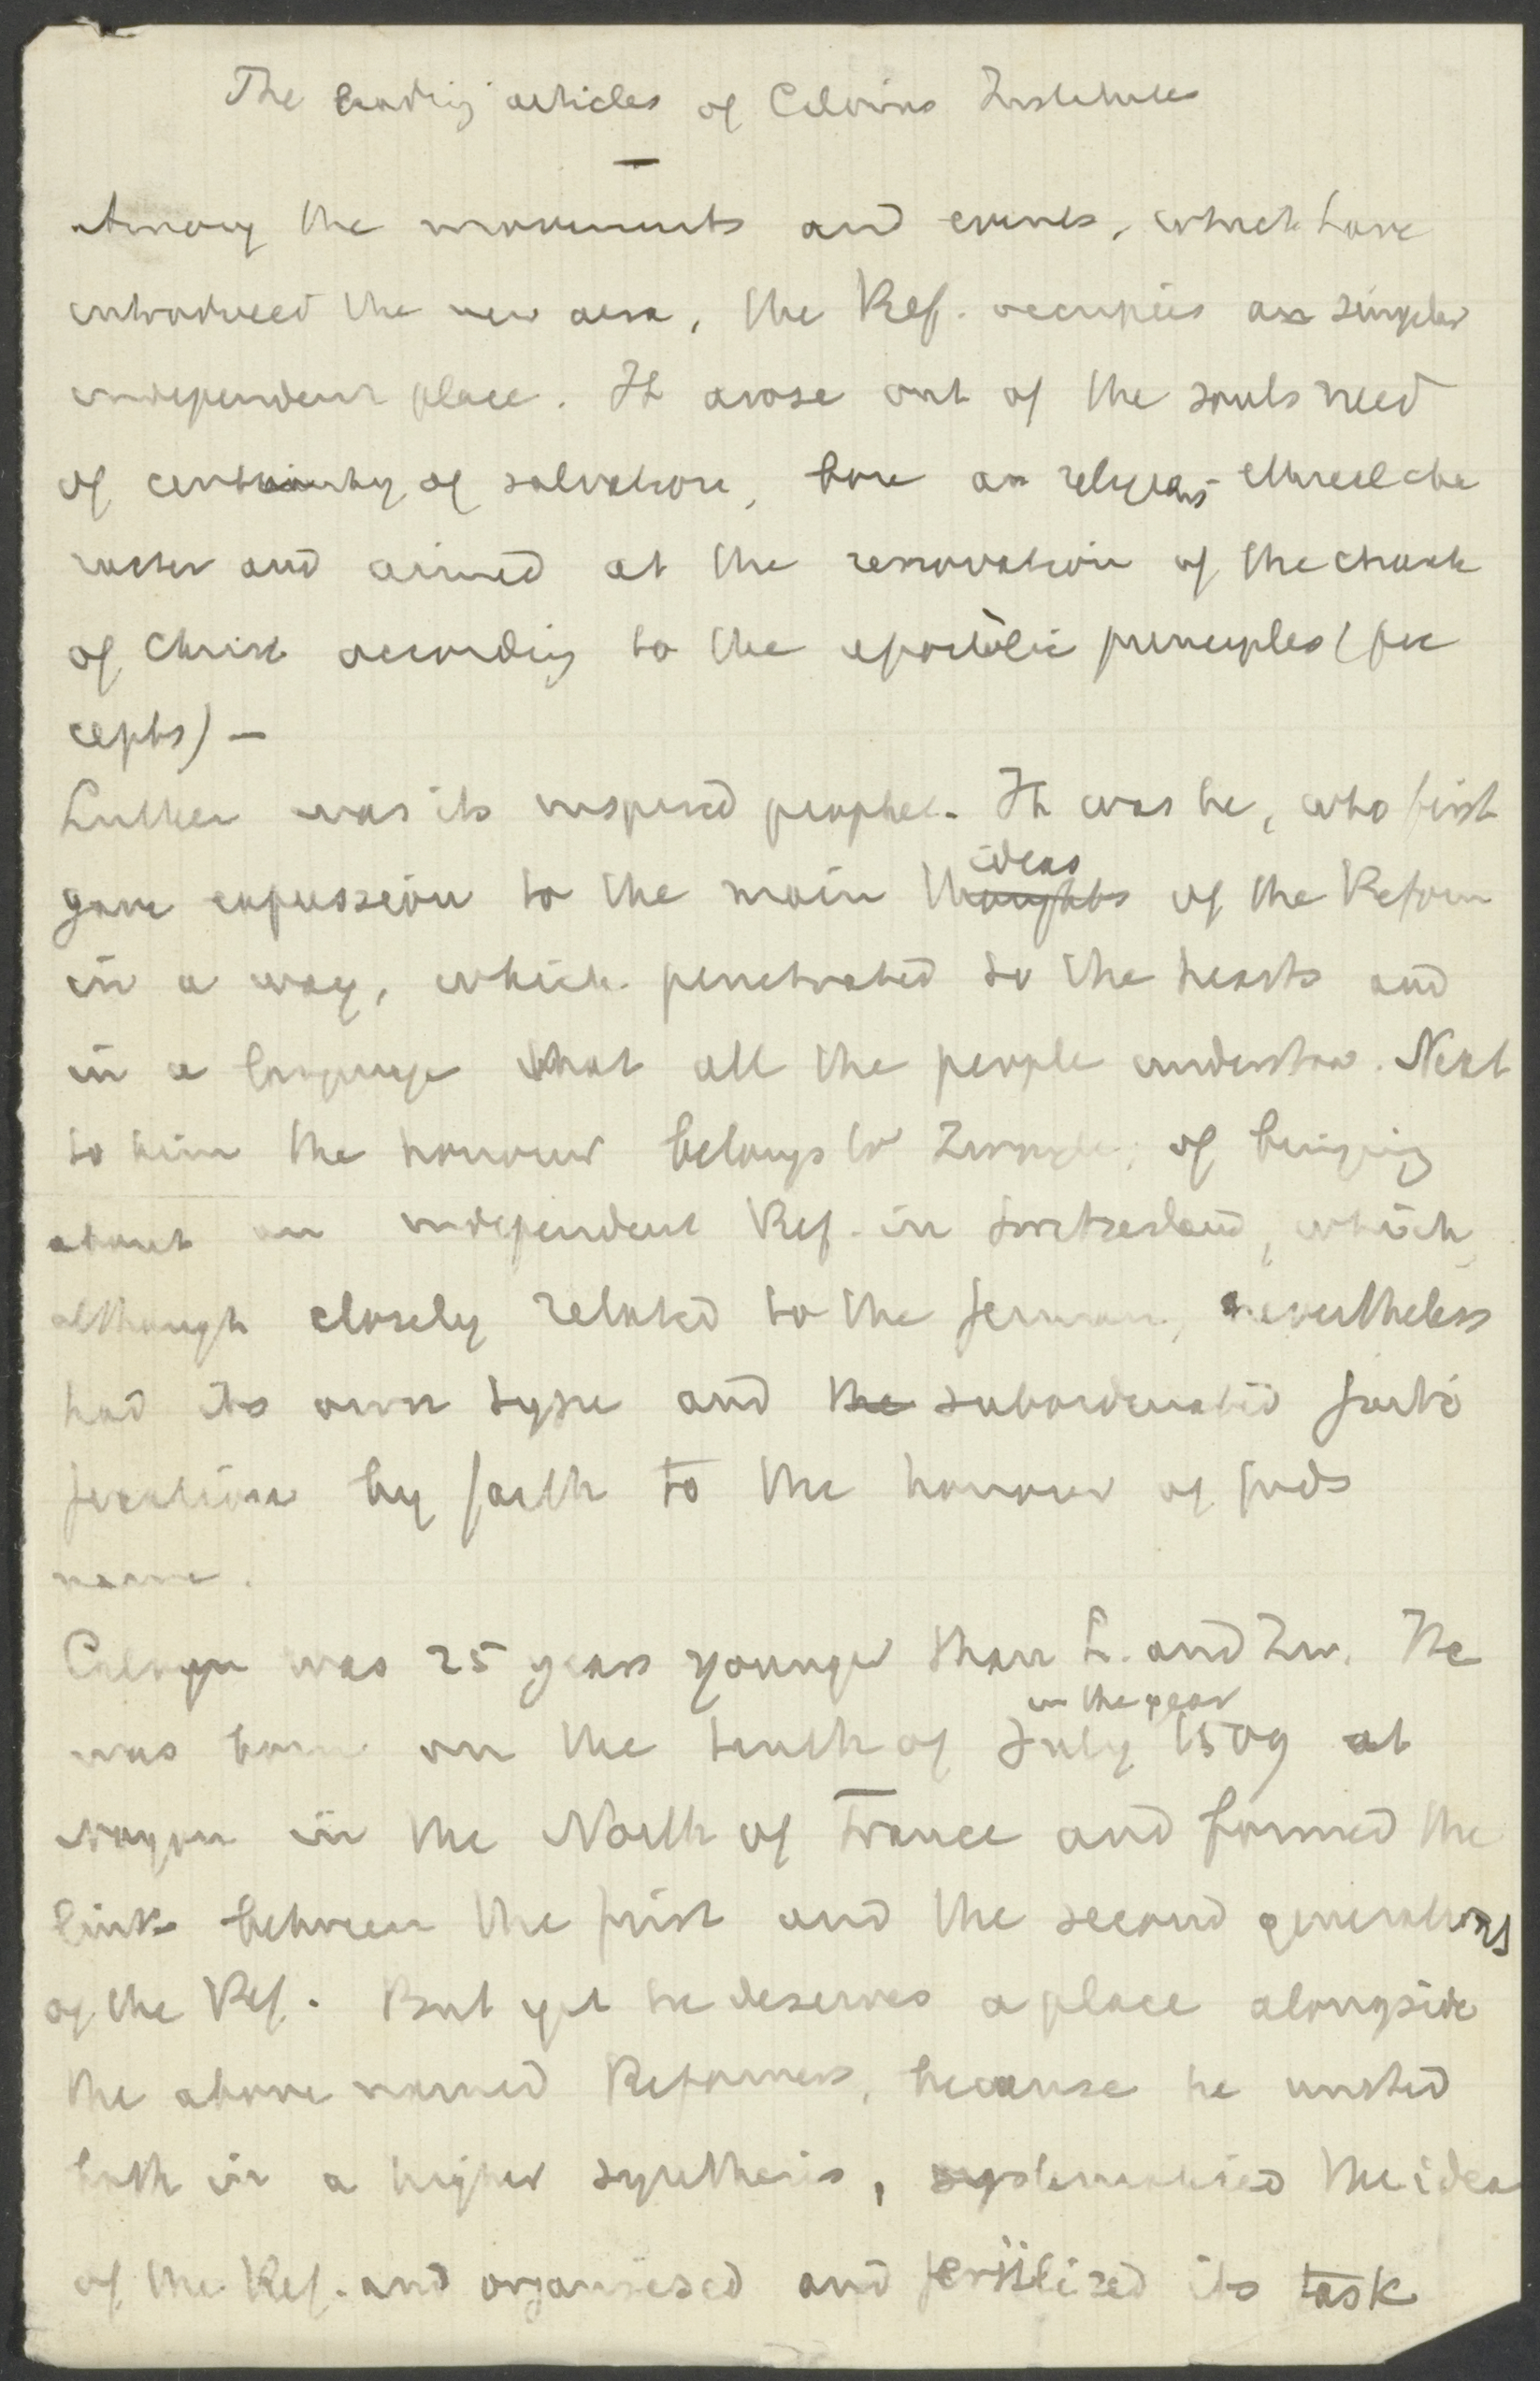 The leading articles of Calvins Institutes
—
Among the movements and events, which have
introduced the new aera, the Ref. occupies a singular
independent place. It arose out of the souls need
of certainty of salvation, bore a religious-ethical cha
racter and aimed at the renovation of the church
of Christ according to the apostolic principles (pre
cepts) —
Luther was its inspired prophet. It was he, who first
ideas
gave expression to the main thoughts of the Reform
in a way, which penetrated to the hearts and
in a language that all the people understood. Next
to him the honour belongs to Zwingli, of bringing
about an independent Ref. in Switzerland, which
although closely related to the German, nevertheless
had its own type and the subordinated justi
fication by faith to the honour of Gods
name.
Calvyn was 25 years younger than L. and Zw. He
in the year
was born on the tenth of July 1509 at
Noyon in the North of France and formed the
link between the first and the second generations
of the Ref. But yet he deserves a place alongside
the above named Reformers, because he united
both in a higher synthesis, systematised the idea
of the Ref. and organisesed and fertilized its task